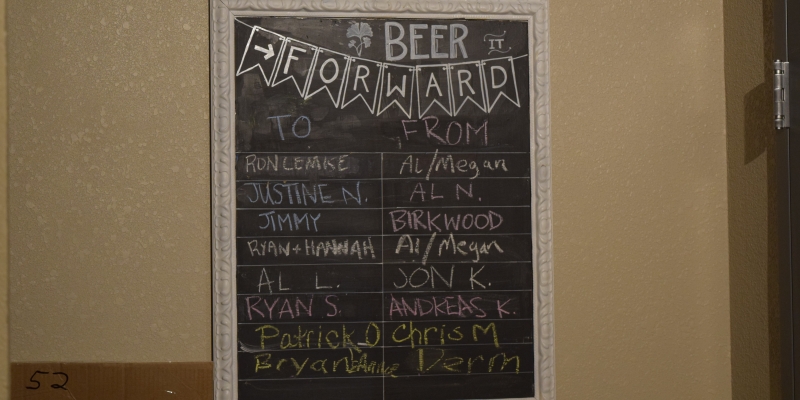 BEER
→FORWARD
TO FROM
RON LEMKE Al/Megan
JUSTINE N. AL N.
JIMMY BIRKWOOD
RYAN + HANNAH Al/Megan
AL L. JON K.
RYAN S. ANDREAS K.
Patrick O Chris M
Bryan Verm
52